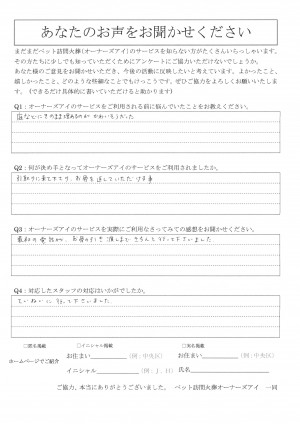 あなたのお声をお聞かせください
まだまだペット訪問火葬(オーナーズアイ)のサービスを知らない方がたくさんいらっしゃいます。
その方たちに少しでも知っていただくためにアンケートにご協力いただけないでしょうか。
あなた様のご意見をお聞かせいただき、今後の活動に反映したいと考えています。よかったこと、
嬉しかったこと、どのような些細なことでもけっこうです。ぜひご協力をよろしくお願いいたしま
す。(できるだけ具体的に書いていただけると助かります)
Q1：オーナーズアイのサービスをご利用される前に悩んでいたことをお教えください。
庭などにそのまま埋めるのが かわいそうだった
Q2：何が決め手となってオーナーズアイのサービスをご利用されましたか。
引取りに来て下さり、お骨を返していただける事
Q3：オーナーズアイのサービスを実際にご利用なさってみての感想をお聞かせください。
最初の電話から、お骨の引き渡しまで きちんと行って下さいました
Q4：対応したスタッフの対応はいかがでしたか。
ていねいに 行って下さいました
□匿名掲載 □イニシャル掲載 □実名掲載
ホームページでご紹介
お住まい (例：中央区) お住まい (例：中央区)
イニシャル (例：J．H) 氏名
ご協力、本当にありがとうございました。 ペット訪問火葬オーナーズアイ 一同